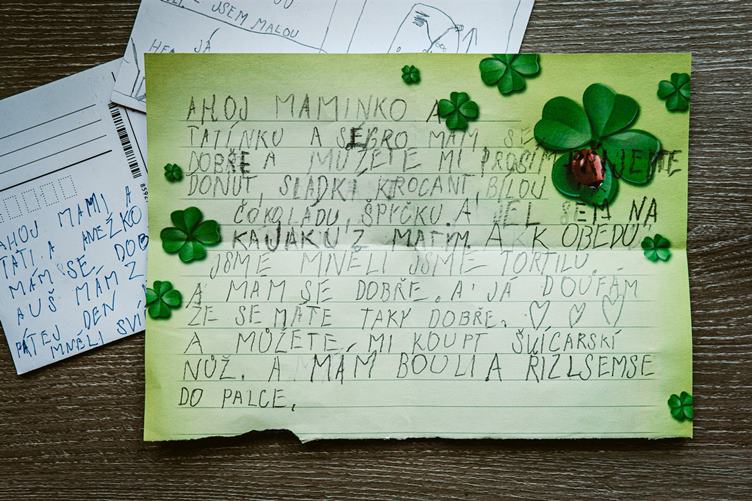 JSEM MALOU
JÁ
AHOJ MAMINKO A
TATÍNKU A SÉGRO MÁM SE
DOBŘE A MŮŽETE MI PROSÍM
DONUT, SLADKÍ KROCANT, BÍLOU
ČOKOLÁDU, ŠPYČKU. A JEL SEM NA
KAJAKU Z MATYM. A K OBĚDU
JSME MNĚLI JSME TORTILU.
A MÁM SE DOBŘE. A JÁ DOUFÁM
ŽE SE MÁTE TAKY DOBŘE. ♡ ♡ ♡
A MŮŽETE MI KOUPT ŠVÍCARSKÍ
NŮŽ. A MÁM BOULI A ŘIZLSEMSE
DO PALCE.
AHOJ MAMI A
TATI A ANEŽKO
MÁM SE DOB
AUŠ MÁM Z
PÁTEJ DEN
MNĚLI SVÍ